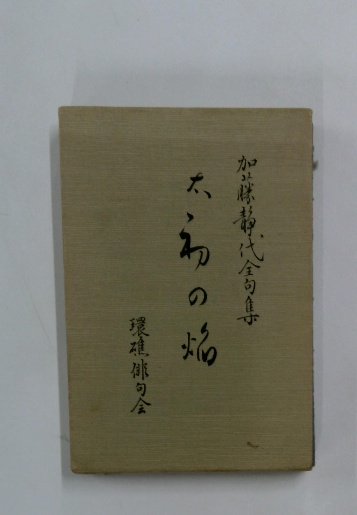 加藤静代全句集
太初の焔
環礁俳句会